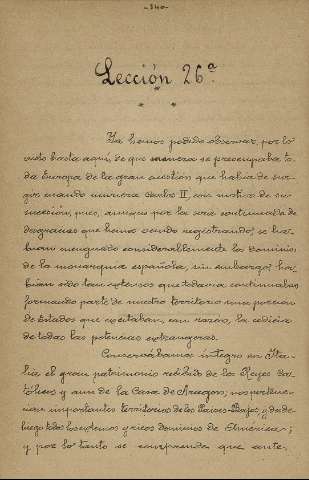 -340-
Lección 26ª
Ya hemos podido observar, por lo
visto hasta aquí, de que manera se preocupaba to-
da Europa de la gran cuestión que había de sur-
gir cuando muriera Carlos II, con motivo de su
sucesión, pues, aunque por la serie continuada de
desgracias que hemos venido registrando, se ha-
bían menguado considerablemente los dominios
de la monarquía española, sin embargo, ha-
bían sido tan extensos que todavía continuaban
formando parte de nuestro territorio una porcion
de Estados que excitaban, con razón, la codicia
de todas las potencias extrangeras.
Conservábamos íntegro en Ita-
lia el gran patrimonio recibido de los Reyes Ca-
tólicos y aun de la Casa de Aragon; nos pertene-
cian importantes territorios de los Paises-Bajos, y desde
luego todos los extensos y ricos dominios de América;
y por lo tanto se comprende que ante,